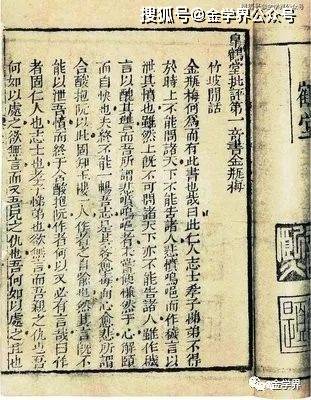 搜狐号@金学界公众号
皐鶴堂批評第一奇書金瓶梅
竹坡閒話
金瓶梅何為而有此書也哉曰此仁人志士孝子悌弟不得
於時上不能問諸天下不能告諸人悲憤嗚唈而作穢言以
泄其憤也雖然上既不可問諸天下亦不能告諸人雖作穢
言以醜其讐而吾所謂悲憤嗚唈者未嘗便慊然于心解頤
而自快也夫終不能一暢吾志是其言愈毒而心愈悲所謂
含酸抱阮以此固知玉樓一人作者之自喻也然其言既不
能以泄吾憤而終于含酸抱阮作者何以又必有言哉曰作
者固仁人也志士也孝子悌弟也欲無言而吾親之仇也吾
何如以處之欲無言而又吾兄之仇也吾何如以處之且也
鶴堂
金学界